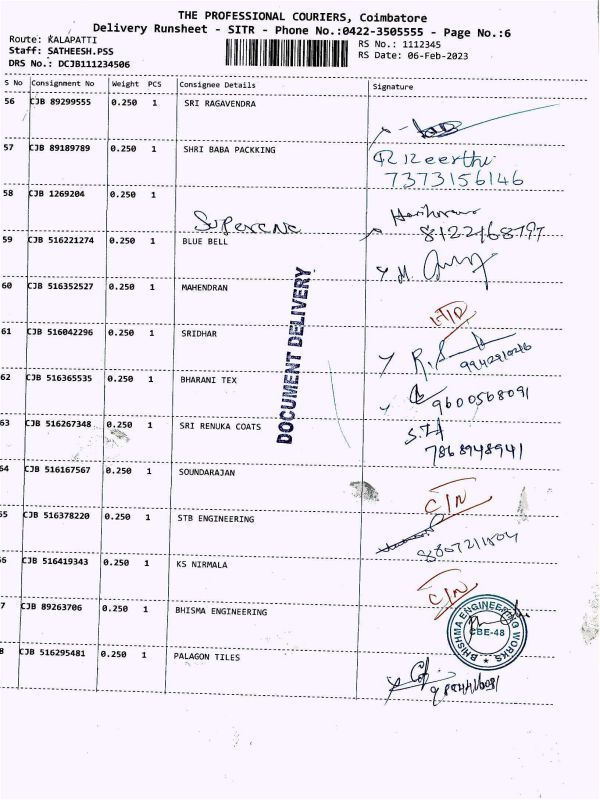 THE PROFESSIONAL COURIERS, Coimbatore
Delivery Runsheet - SITR - Phone No.:0422-3505555 - Page No.:6
Route: KALAPATTI
RS No.: 1112345
Staff: SATHEESH.PSS
RS Date: 06-Feb-2023
DRS No.: DCJB111234506
S No Consignment No Weight PCS Consignee Details Signature
56 CJB 89299555 0.250 1 SRI RAGAVENDRA
57 CJB 89189789 0.250 1 SHRI BABA PACKKING
7373156146
58 CJB 1269204 0.250 1
59 CJB 516221274 0.250 1 BLUE BELL
60 CJB 516352527 0.250 1 MAHENDRAN
61 CJB 516042296 0.250 1 SRIDHAR
DOCUMENT DELIVERY
62 CJB 516365535 0.250 1 BHARANI TEX
9600568091
63 CJB 516267348 0.250 1 SRI RENUKA COATS
7868948941
64 CJB 516167567 0.250 1 SOUNDARAJAN
65 CJB 516378220 0.250 1 STB ENGINEERING
66 CJB 516419343 0.250 1 KS NIRMALA
7 CJB 89263706 0.250 1 BHISMA ENGINEERING
BHISHMA ENGINEERING WORKS
CBE-48
8 CJB 516295481 0.250 1 PALAGON TILES